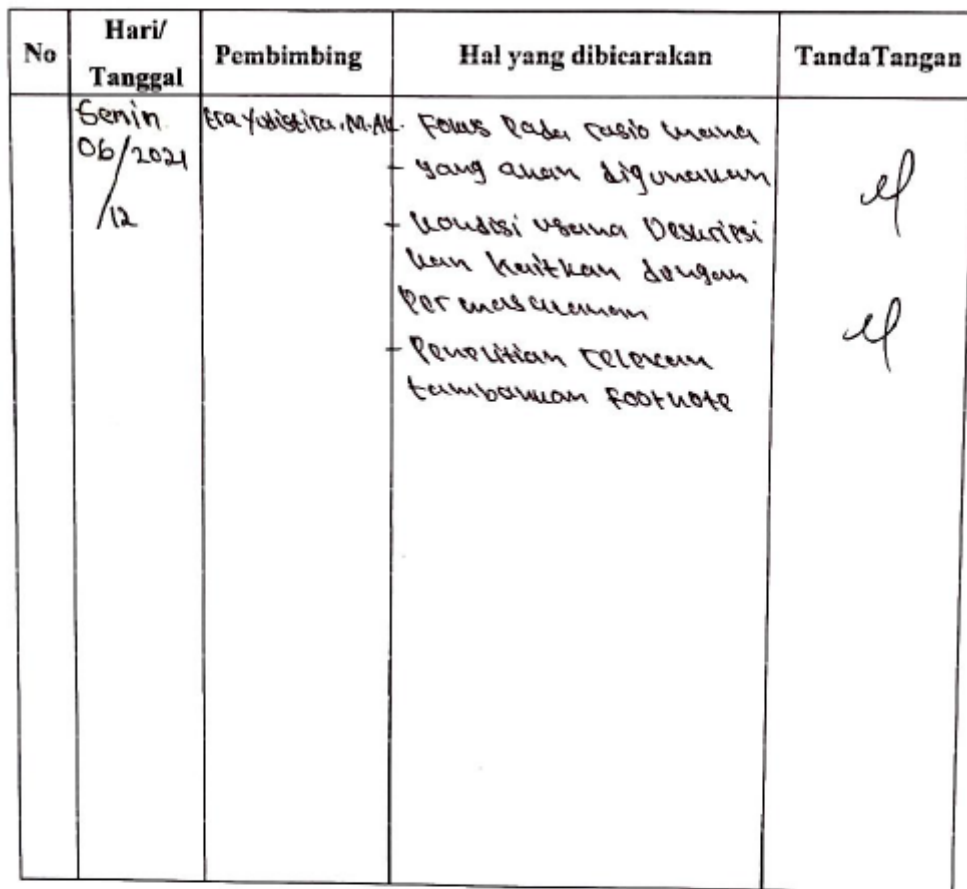 No
Hari/
Tanggal
Pembimbing
Hal yang dibicarakan
TandaTangan
Senin
06/2021
/12
Era Yudistira, M.Ak
- Fokus pada rasio mana
- yang akan digunakan
- kondisi usaha Deskripsi
kan kaitkan dengan
Permasalahan
- Penelitian relevan
tambahkan Footnote